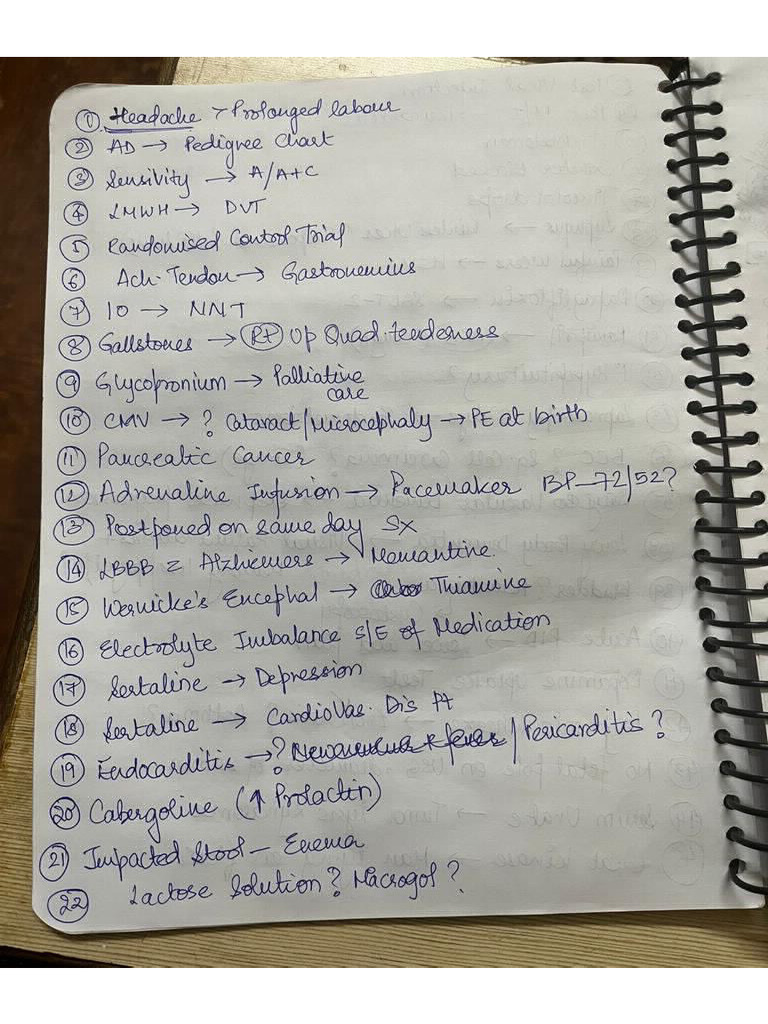 ① Headache > Prolonged labour
② AD → Pedigree Chart
③ Sensivity → A/A+C
④ LMWH → DVT
⑤ Randomised Control Trial
⑥ Ach. Tendon → Gastronemius
⑦ 10 → NNT
⑧ Gallstones → Rt Up Quad. tenderness
⑨ Glycopronium → Palliative care
⑩ CMV → ? Cataract/Microcephaly → PE at birth
⑪ Pancreatic Cancer
⑫ Adrenaline Infusion → Pacemaker BP-72/52?
⑬ Postponed on same day Sx
⑭ LBBB = Alzhiemers → Memantine
⑮ Wernicke's Encephal → Thiamine
⑯ Electrolyte Imbalance S/E of Medication
⑰ Sertaline → Depression
⑱ Sertaline → CardioVas. Dis Pt
⑲ Endocarditis → ? / Pericarditis ?
⑳ Cabergoline (↑ Prolactin)
㉑ Impacted Stool - Enema
㉒ Lactose Solution? Macrogol?